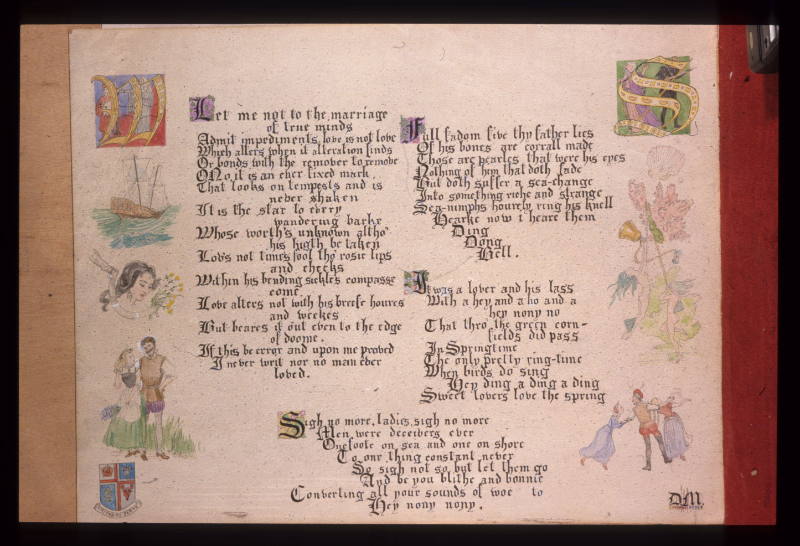 Let me not to the marriage
of true minds
Admit impediments, love is not love
Which alters when it alteration finds
Or bonds with the remover to remove
O No, it is an ever fixed mark,
That looks on tempests and is
never shaken
It is the star to every
wandering barke
Whose worth's unknown altho'
his higth be taken
Love's not time's fool tho' rosie lips
and cheeks
Within his bending sickle's compasse
come
Love alters not with his breefe houres
and weekes
But beares it out even to the edge
of doome.
If this be error and upon me proved
I never writ nor no man ever
loved.
Full fadom five thy father lies
Of his bones are corrall made
Those are pearles that were his eyes
Nothing of him that doth fade
But doth suffer a sea-change
Into something riche and strange
Sea-nimphs hourely ring his knell
Hearke now I heare them
Ding
Dong
Bell.
It was a lover and his lass
With a hey and a ho and a
hey nony no
That thro' the green corn-
fields did pass
In Springtime
The only pretty ring-time
When birds do sing
Hey ding a ding a ding
Sweet lovers love the spring
Sigh no more, ladies, sigh no more
Men were deceivers ever
One foote on sea and one on shore
To one thing constant never
So sigh not so, but let them go
And be you blithe and bonnie
Converting all your sounds of woe to
Hey nony nony.
D.M.